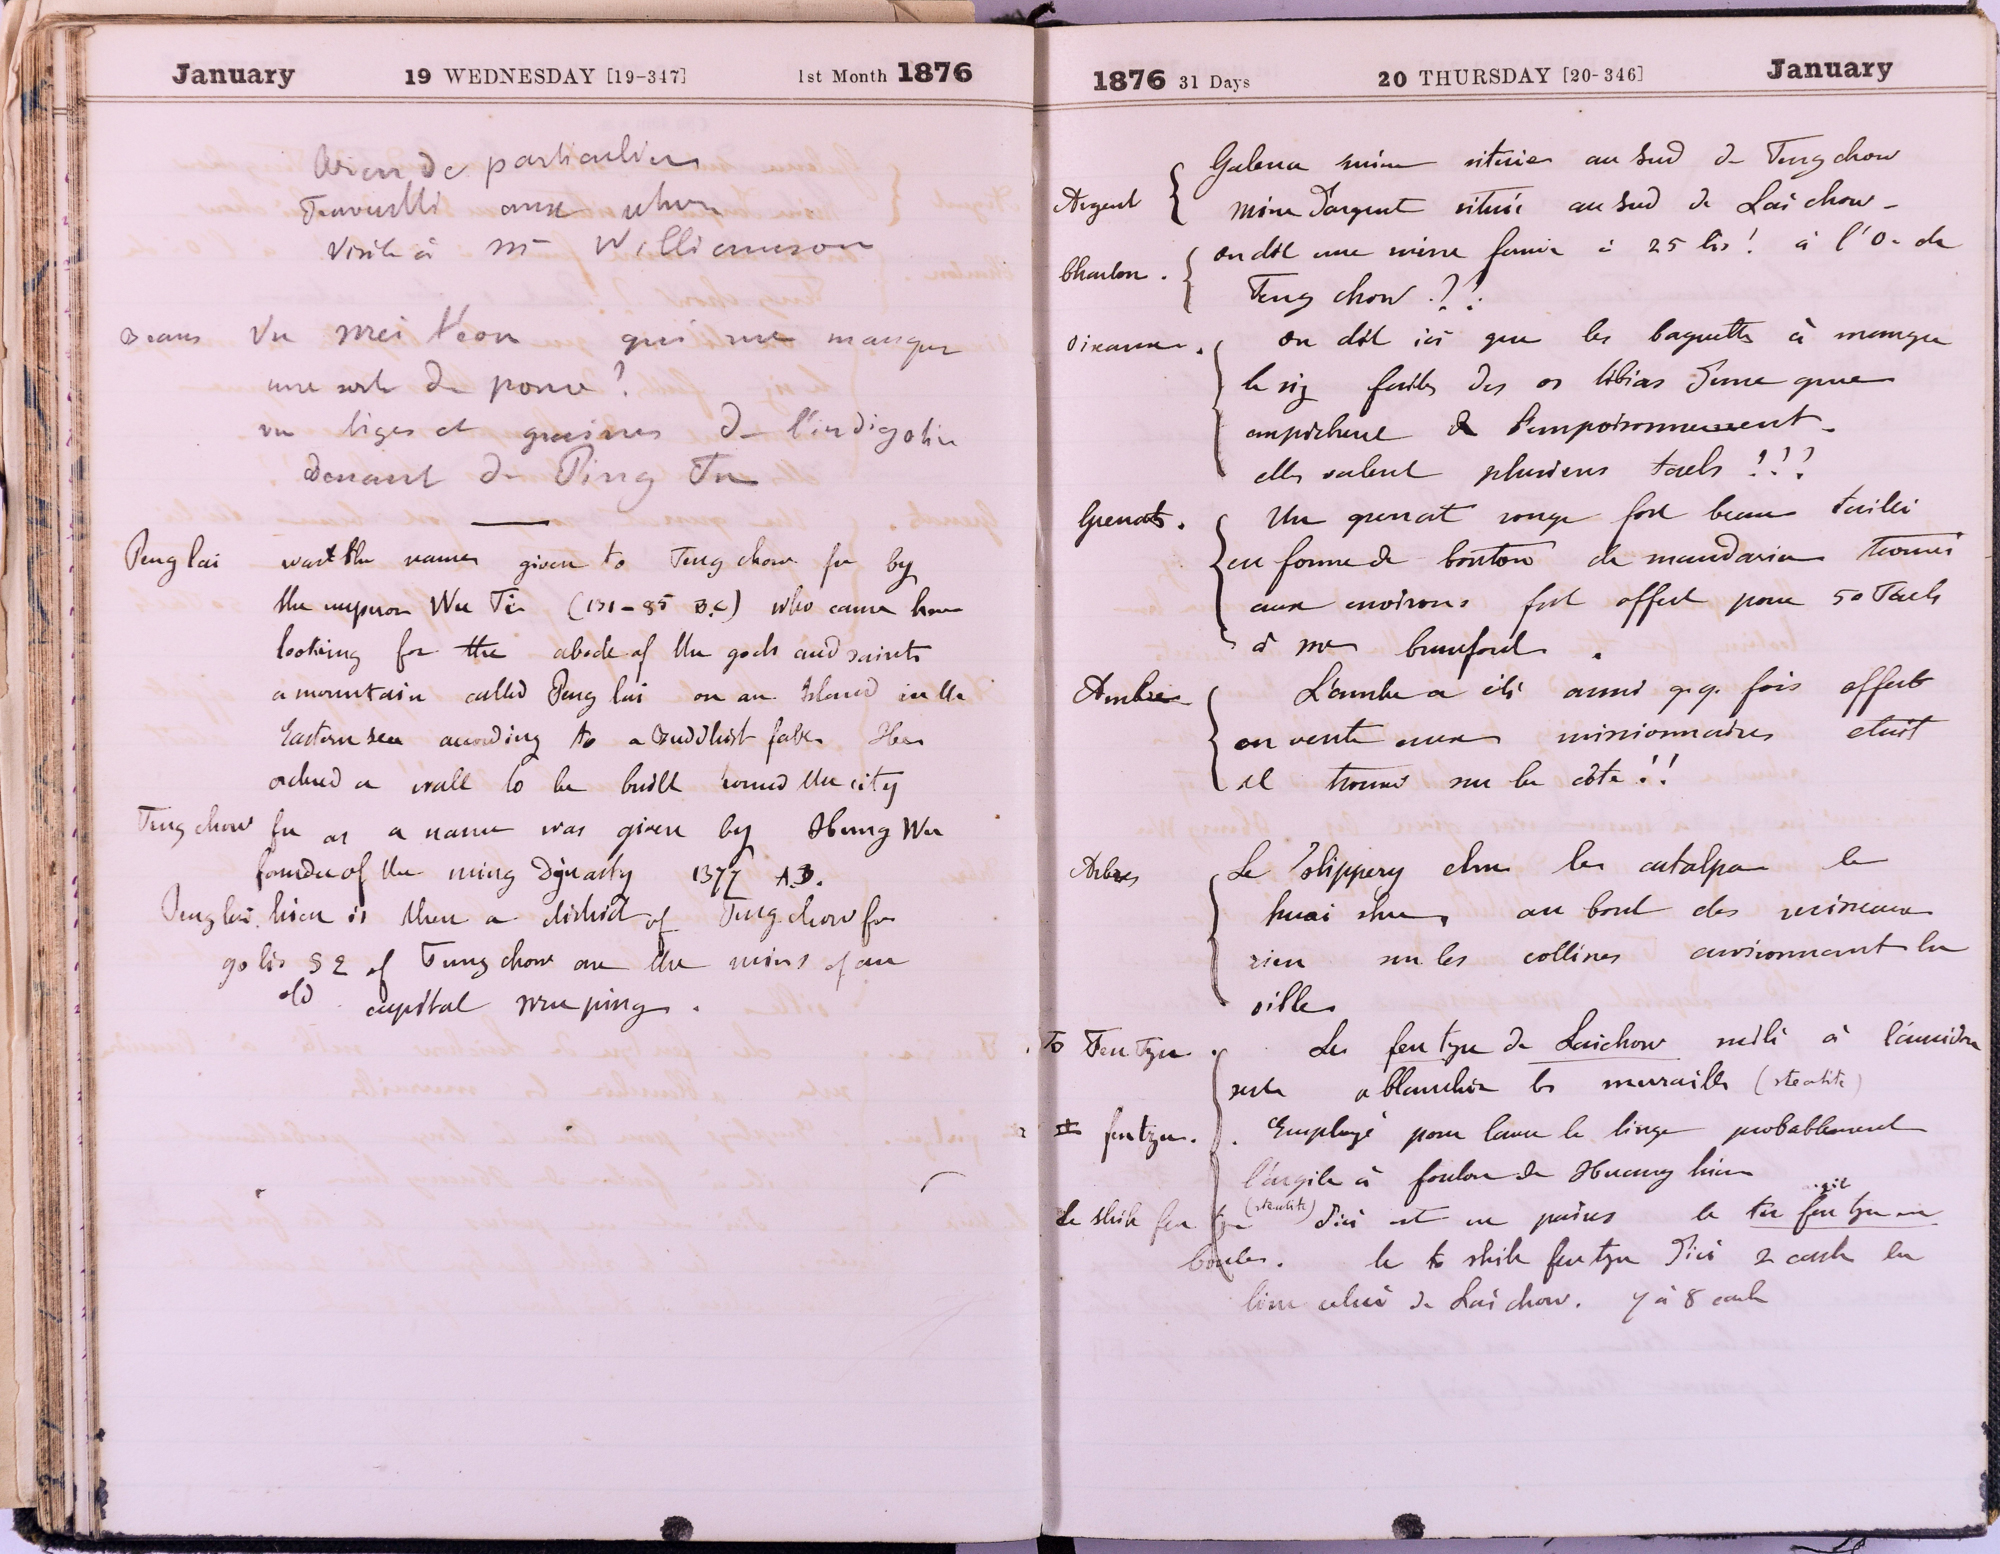 January 19 WEDNESDAY [19-347] 1st Month 1876
Rien de particulier
Travaillé aux
Visite à Mr Williamson
Beans Vu mei teou qui me manque
une sorte de
vu tiges et graines de l'indigotier
venant de Ping Tu
Penglai was the name given to Tengchow fu by
the emperor Wu Ti (131-85 B.C) who came here
looking for the abode of the gods and saints
a mountain called Peng lai on an Island in the
Eastern sea according to a Buddhist fable He
ordered a wall to be built round the city
Teng chow fu as a name was given by Hung Wu
founder of the ming Dynasty 1377 A.D.
Penglai hien is then a district of Tengchow fu
90 lis S E of Tengchow are the ruins of an
old capital ping.
1876 31 Days 20 THURSDAY [20-346] January
Galena mine située au Sud de Teng chow
Argent mine d'argent située au Sud de Lai chow -
Charbon. on dit une mine fermée à 25 lis! à l'O. de
Teng chow ??
Oiseaux. on dit ici que les baguettes à manger
le riz faites des os tibias d'une grue
empêchent de l'empoisonnement.
elles valent plusieurs taels !!!
Grenats. Un grenat rouge fort beau taillé
en forme de bouton de mandarin trouvé
aux environs fut offert pour 50 Taels
à mr
Ambre L'ambre a été aussi qq. fois offert
en vente aux missionnaires était
il trouvé sur la côte !!
Arbres Le slippery elm les catalpa le
huai shu, au bord des ruisseaux
rien sur les collines environnant la
ville
To Fen Tzu. Le fen tzu de Laichow mêlé à l'amidon
sert a blanchir les murailles (steatite)
fentzu. Employé pour laver le linge probablement
l'argile à foulon de Huang hien
Le shih fen tzu (steatite) d'ici est en pains le tu fen tzu en
boules. le to shih fen tzu d'ici 2 cash la
livre celui de Lai chow. 7 à 8 cash